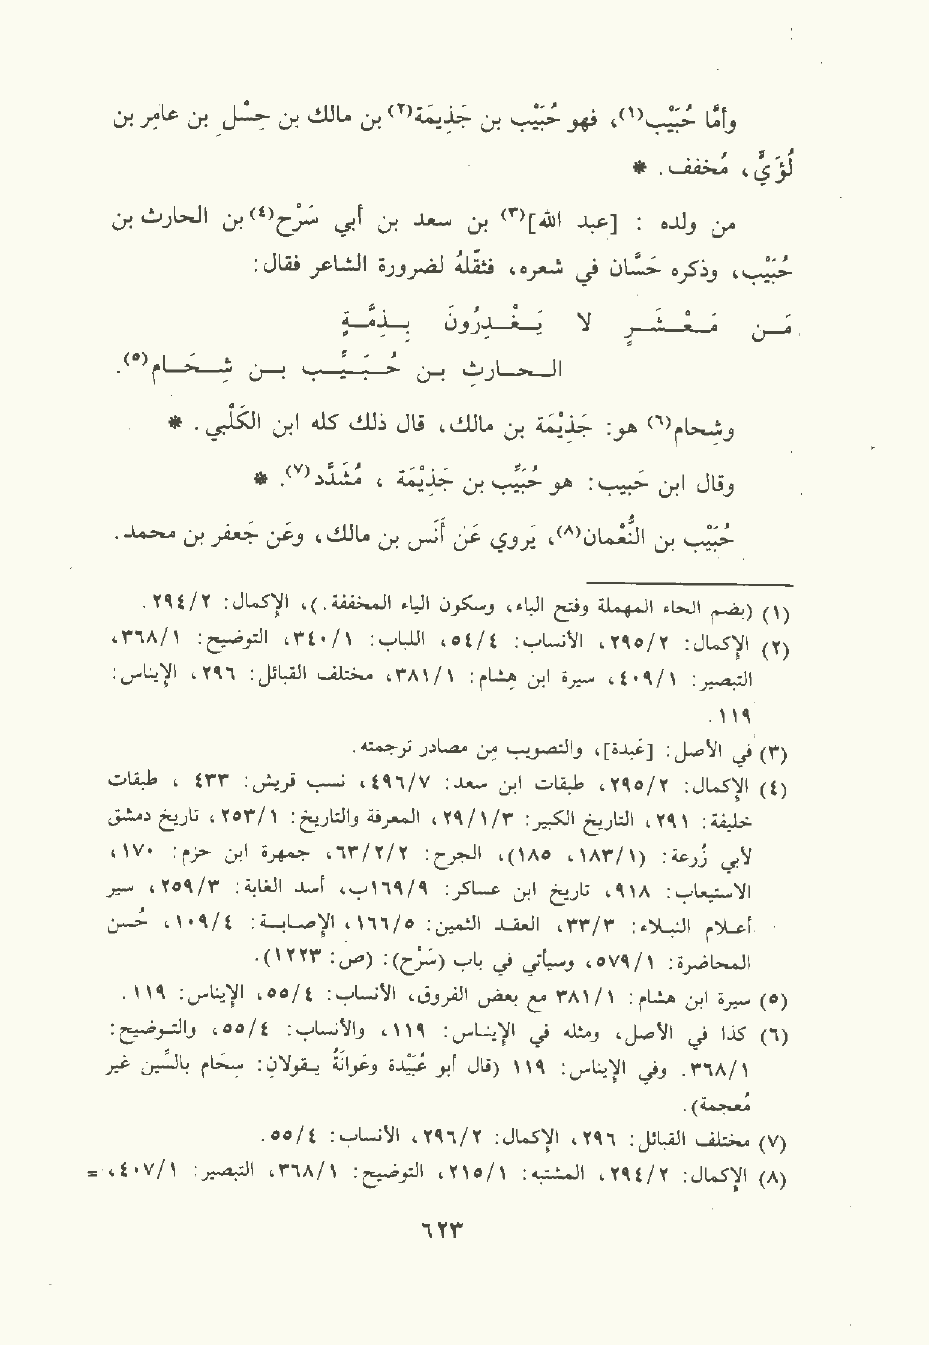 وأمّا حُبَيْب(١)، فهو حُبَيْب بن جَذِيمَة(٢) بن مالك بن حِسْل بن عامِر بن
لُؤَيّ، مُخفف. *
من ولده : [عبد الله](٣) بن سعد بن أبي سَرْح(٤) بن الحارث بن
حُبَيْب، وذكره حَسّان في شعره، فثقّلهُ لضرورة الشاعر فقال:
مَـن مَـعْـشَـرٍ لا يَـغْـدِرُونَ بِـذِمَّـةٍ
الـحـارثِ بـن حُـبَـيَّـب بـن شِـحَـام(٥).
وشِحام(٦) هو: جَذِيْمَة بن مالك، قال ذلك كله ابن الكَلْبيّ. *
وقال ابن حَبيب: هو حُبَيِّب بن جَذِيْمَة ، مُشَدَّد(٧). *
حُبَيْب بن النُّعمان(٨)، يَروي عَن أَنَس بن مالك، وعَن جَعفر بن محمد.
(١) (بضم الحاء المهملة وفتح الباء، وسكون الياء المخففة.)، الإكمال: ٢/ ٢٩٤.
(٢) الإكمال: ٢/ ٢٩٥، الأنساب: ٤/ ٥٤، اللباب: ١/ ٣٤٠، التوضيح: ١/ ٣٦٨،
التبصير: ١/ ٤٠٩، سيرة ابن هِشام: ١/ ٣٨١، مختلف القبائل: ٢٩٦، الإيناس:
١١٩.
(٣) في الأصل: [عَبدة]، والتصويب مِن مصادر ترجمته.
(٤) الإكمال: ٢/ ٢٩٥، طبقات ابن سعد: ٧/ ٤٩٦، نسب قريش: ٤٣٣ ، طبقات
خليفة: ٢٩١، التاريخ الكبير: ٣/ ١/ ٢٩، المعرفة والتاريخ: ١/ ٢٥٣، تاريخ دمشق
لأبي زُرعة: (١/ ١٨٣، ١٨٥)، الجرح: ٢/ ٢/ ٦٣، جمهرة ابن حزم: ١٧٠،
الاستيعاب: ٩١٨، تاريخ ابن عساكر: ٩/ ١٦٩ب، أسد الغابة: ٣/ ٢٥٩، سير
أعـلام النبـلاء: ٣/ ٣٣، العقـد الثمين: ٥/ ١٦٦، الإصـابـة: ٤/ ١٠٩، حُـسـن
المحاضرة: ١/ ٥٧٩، وسيأتي في باب (سَرْح): (ص: ١٢٢٣).
(٥) سيرة ابن هشام: ١/ ٣٨١ مع بعض الفروق، الأنساب: ٤/ ٥٥، الإيناس: ١١٩.
(٦) كذا في الأصل، ومثله في الإيناس: ١١٩، والأنساب: ٤/ ٥٥، والتوضيح:
١/ ٣٦٨. وفي الإيناس: ١١٩ (قال أبو عُبَيْدة وعَوانَةُ يقولانِ: سحَام بالسِّين غير
مُعجمة).
(٧) مختلف القبائل: ٢٩٦، الإكمال: ٢/ ٢٩٦، الأنساب: ٤/ ٥٥.
(٨) الإكمال: ٢/ ٢٩٤، المشتبه: ١/ ٢١٥، التوضيح: ١/ ٣٦٨، التبصير: ١/ ٤٠٧، =
٦٢٣